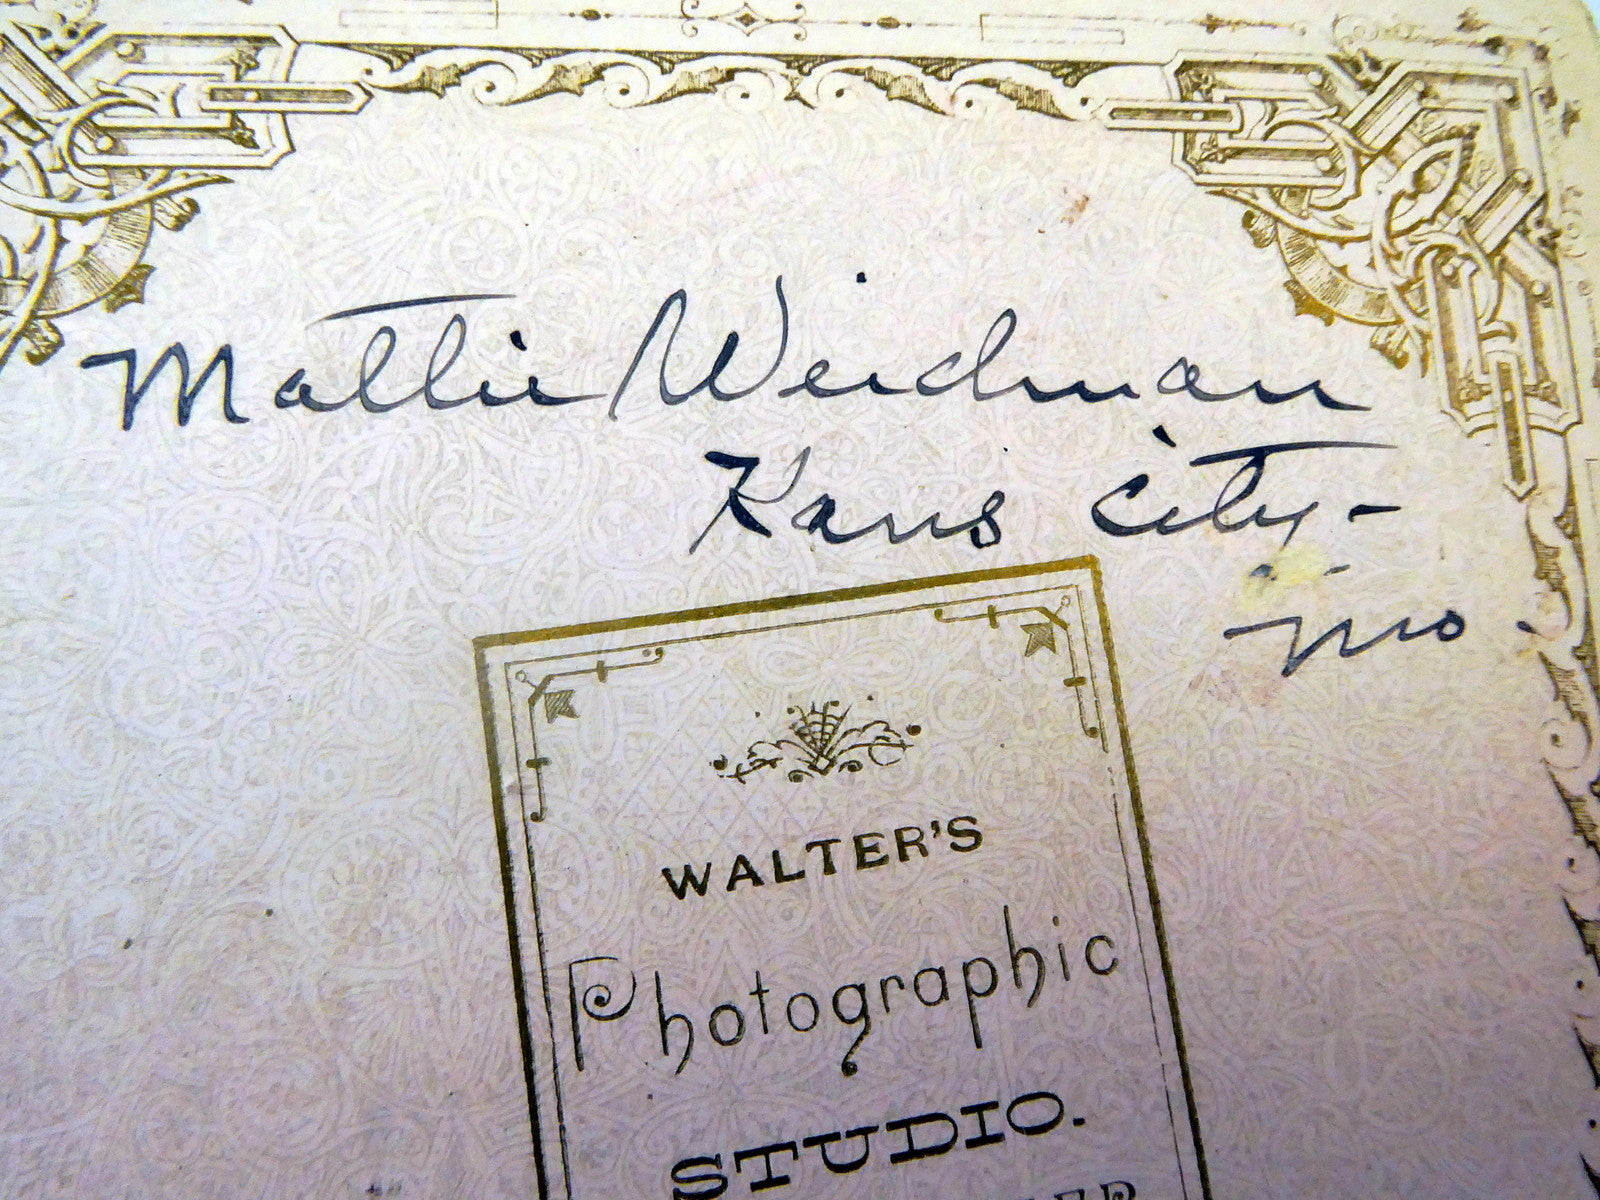 Mattie Weidman
Kans City-
Mo.
WALTER'S
Photographic
STUDIO.